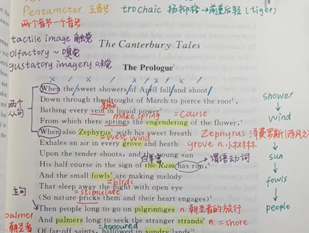 Pentameter 五音步 trochaic 扬抑格→前重后轻(tiger)
两个音节一个音步
tactile image 触觉
olfactory ~ 嗅觉
gustatory imagery 味觉
The Canterbury Tales
The Prologue
When the sweet showers of April fall and shoot
Down through the drought of March to pierce the root,
Bathing every vein in liquid power
make spring = cause
From which there springs the engendering of the flower,
When also Zephyrus with his sweet breath
Zephyrus
= west wind
Exhales an air in every grove and heath
grove n. 小树林
Upon the tender shoots, and the young sun
白羊宫
His half-course in the sign of the Ram has run,
谓语动词
And the small fowls are making melody
= birds
That sleep away the night with open eye
= stimulate
(So nature pricks them and their heart engages)
Then people long to go on pilgrimages
n. 朝圣者的旅行
And palmers long to seek the stranger strands
n. = shore
honoured
Of far-off saints, hallowed in sundry lands,
两个从句
主句
palmer
朝圣者
shower
↓
wind
↓
sun
↓
fowls
↓
people